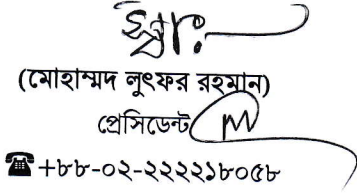 স্বাঃ
(মোহাম্মদ লুৎফর রহমান)
প্রেসিডেন্ট
☎+৮৮-০২-২২২২১৮০৫৮